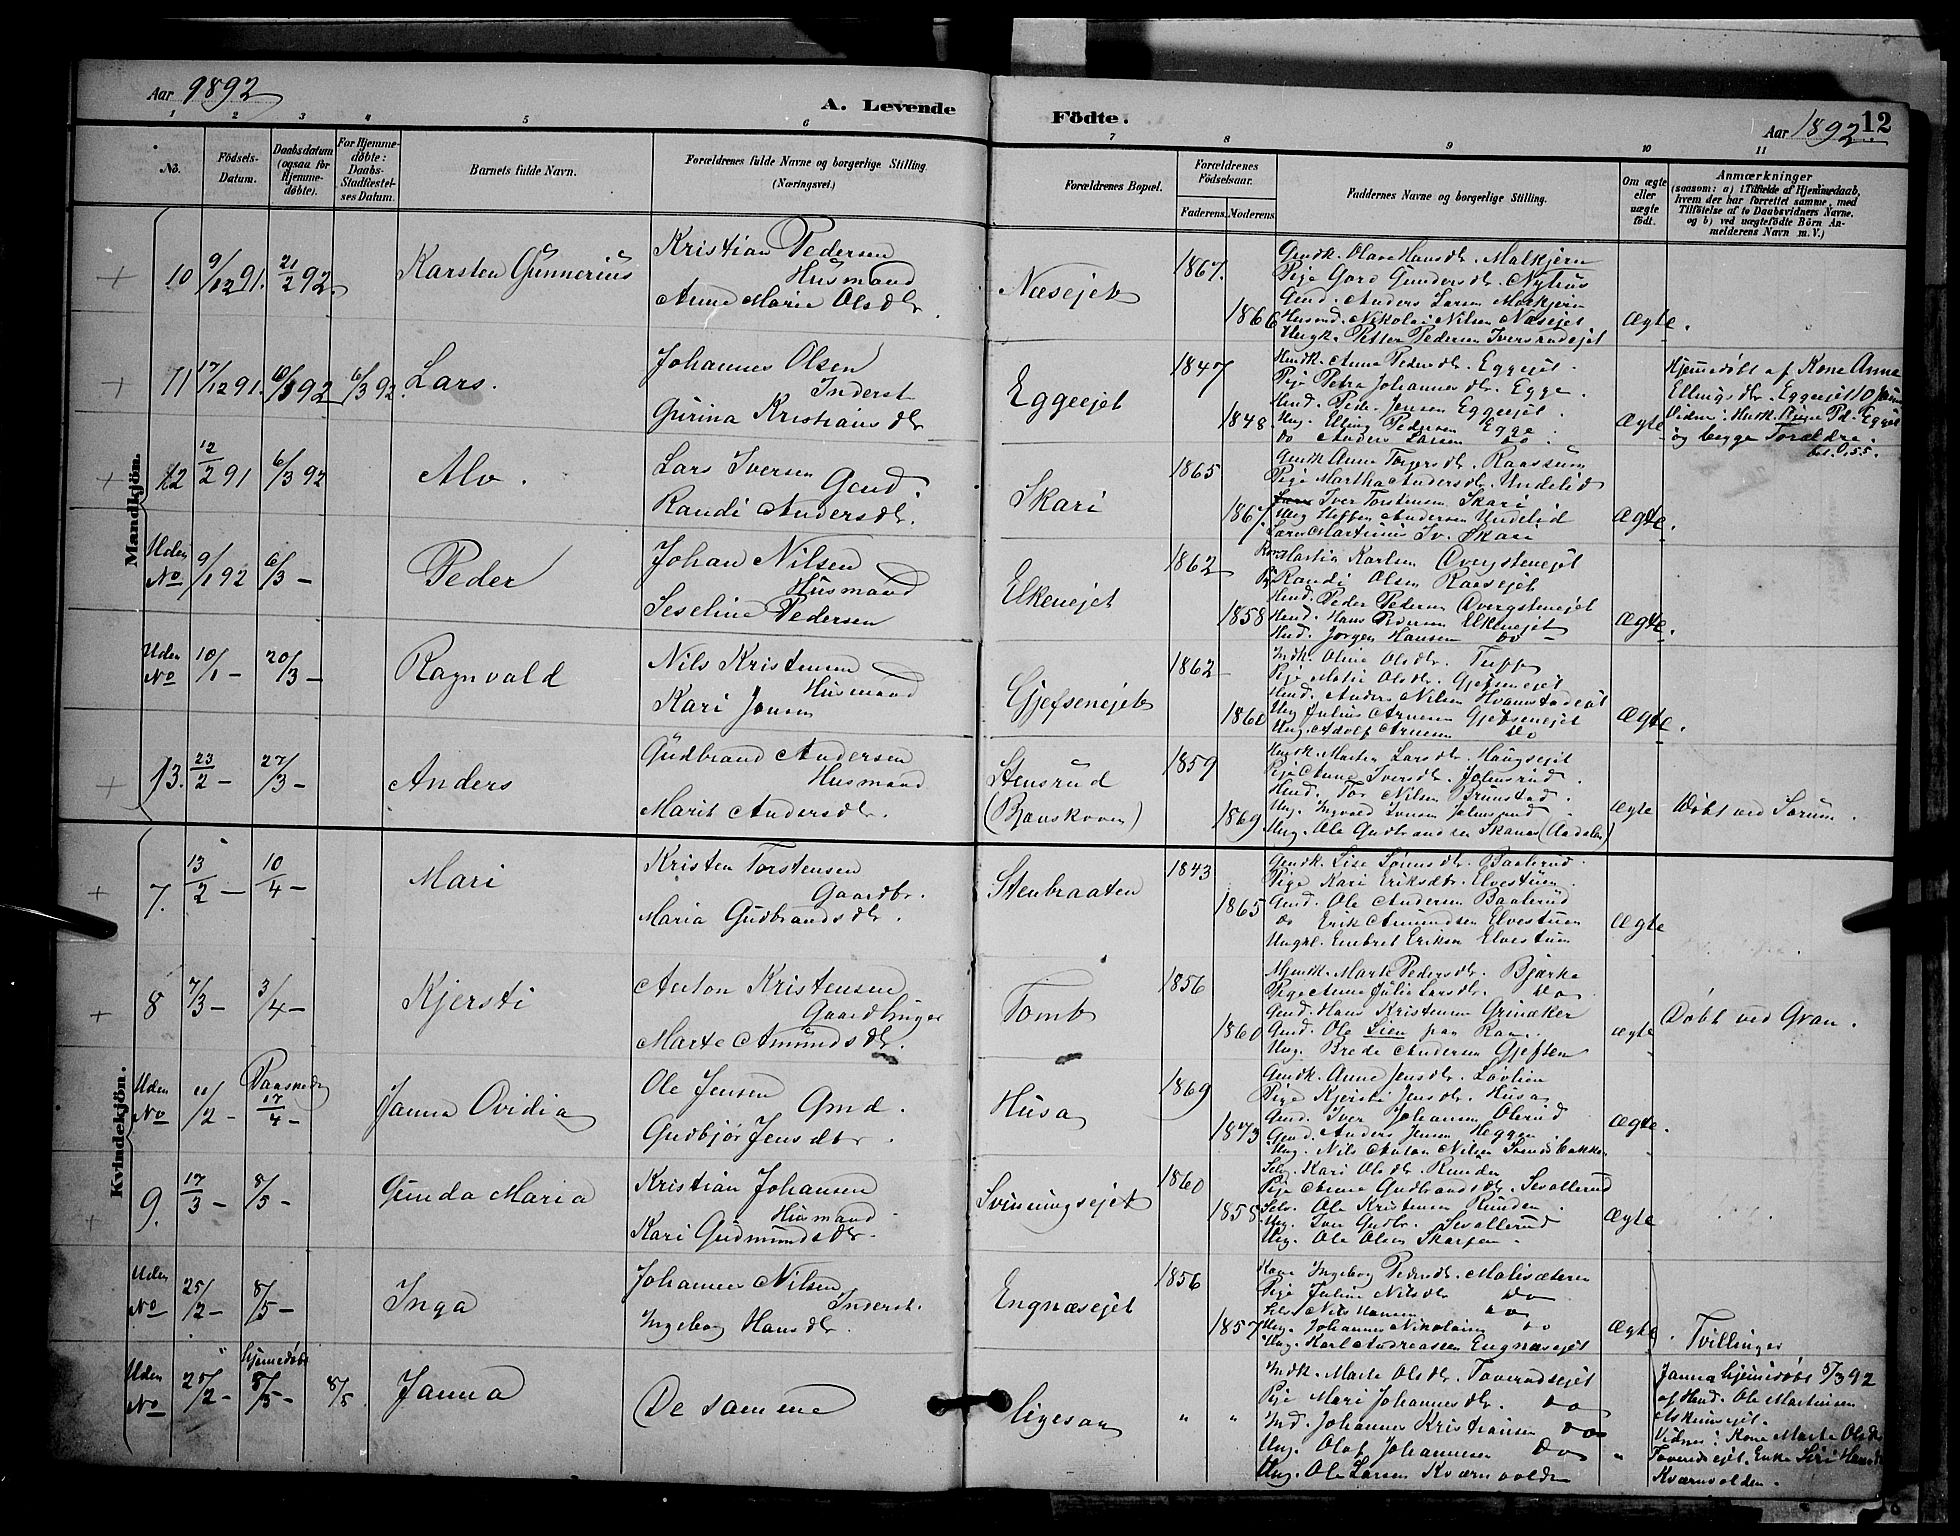 Aar 1892
A. Levende
Födte.
Aar 1892
12
1 2 3 4 5 6 7 8 9 10 11
No.
Födsels-Datum.
Daabsdatum (ogsaa for Hjemmedøbte).
For Hjemmedøbte: Daabs-Stadfestelses Datum.
Barnets fulde Navn.
Forældrenes fulde Navne og borgerlige Stilling. (Næringsvei.)
Forældrenes Bopæl.
Forældrenes Födselsaar.
Faderens.
Moderens.
Faddernes Navne og borgerlige Stilling.
Om ægte eller uægte födt.
Anmærkninger
(saasom: a) i Tilfælde af Hjemmedaab,
hvem der har forrettet samme, med
Tilföielse af to Daabsvidners Navne.
og b) ved uægtefödte Börn An-
melderens Navn m. V.)
Mandkjön.
10 9/12 91. 21/2 92. Karsten Gunnerius
Kristian Pedersen
Husmand
Anne Marie Olsdtr.
Næsejet
1867.
1866
Gmdk. Olave Hansdtr. Malkjern
Pige Goro Gundersdtr. Nyhus
Gmd. Anders Larsen Malkjern
Husmd. Nikolai Nilsen Næsejet
Ungk. Petter Pedersen Iversrudejet
Ægte.
11 17/12 91. 6/3 92 6/3 92. Lars.
Johannes Olsen
Inderst
Gurina Kristiansdtr
Eggeejet
1847
1848
Husk. Anne Pedersdtr. Eggejet.
Pige Petra Johannesdtr. Egge.
Husd. Peder Jensen Eggeejet.
Ung. Elling Pedersen Egge
do Anders Larsen do.
Ægte
Hjemmedøbt af Kone Anne
Ellingsdtr. Eggeejet 10 Janu
og begge Forældre.
bet. 0,55.
12 12/2 91 6/3 92 Alv.
Lars Iversen
Gmd.
Randi Andersdtr.
Skari
1865
1867
Gmdk. Anne Torgersdtr. Raassum
Pige Martha Andersdtr. Undelid
Iver Torstensen Skari
Ung Steffen Andersen Undelid
Lars Martinius Iv. Skari
Ægte.
Uden No 9/1 92 6/3 – Peder
Johan Nilsen
Husmand
Seseline Pedersen
Elkenejet
1862
1858
Kone Martia Karlsen Øvergstenejet
Pig Randi Olsen Raasejet
Husd. Peder Petersen Øvergstenejet
Husd. Hans Pedersen Elkenejet
Husd. Jørgen Hansen do –
Ægte.
Uden No 10/1 – 20/3 – Ragnvald
Nils Kristensen
Husmand
Kari Jensen
Gjefsenejet
1862
1860
Indk. Oline Olsdtr. Tuff
Pige Mathie Olsdtr. Gjefsenejet
Husd. Anders Nilsen Hvamstadejet
Ung Julius Arnesen Gjefsenejet
Ung. Adolf Arnesen do
Ægte.
13. 23/2 – 27/3 – Anders
Gudbrand Andersen
Husmand
Marit Andersdtr.
Stensrud
(Bjønskoven)
1859
1869
Husk. Marten Larsdtr. Haugsejet
Pige Anne Iversdtr. Johnsrud.
Husd. Tor Nilsen Brunstad.
Ung. Ingvald Iversen Johnsrud.
Ung. Ole Gudbrandsen Skaner (Aadalen)
Ægte
Døbt ved Sørum.
Kvindekjön.
7. 13/2 – 10/4 – Mari
Kristen Torstensen
Gaardbr.
Maria Gudbrandsdtr.
Stenbraaten
1843
1865
Gmdk. Lise Sørensdtr. Baalerud.
Pige Kari Eriksdtr. Elvestuen
Gmd. Ole Andersen Baalerud
do Erik Amundsen Elvestuen
Ungkl. Embret Eriksen Elvestuen
Ægte
8 7/3 – 3/4 – Kjersti
Anton Kristensen
Gaardbruger
Marte Amundsdtr.
Tomb
1856
1860
Gmdk. Marte Pedersdtr. Bjørke
Pige Anne Julie Larsdtr. do
Gmd. Hans Kristensen Grinaker
Gmd. Ole Lien paa Ran.
Ung. Brede Andersen Gjefsen
ægte
Døbt ved Gran.
Uden No 11/2 – Paaskedag 17/4 – Janna Ovidia
Ole Jensen
Gmd.
Gudbjør Jensdtr.
Husa
1869
1873
Gmdk. Anne Jensdtr. Løvlien
Pige Kjersti Jensdtr. Husa
Gmd. Iver Johannesen Olerud
Gmd. Anders Jensen Heggen
Ung. Nils Anton Nilsen
Ægte.
9. 17/3 – 8/5 – Gunda Maria
Kristian Johansen
Husmand
Kari Gudmundsdtr.
Svinningsejet
1860
1858
Selv. Kari Olsdtr. Runden
Pige Anne Gudbrandsdtr. Sevallerud
Selv. Ole Kristensen Runden.
Ung. Iver Gudbr. Sevallerud
Ung. Ole Olsen Skarpen.
Ægte
Uden No 25/2 – 8/5 – Inga
Johannes Nilsen
Inderst.
Ingeborg Hansdtr.
Engnæsejet
1856
1857
Kone Ingeborg Pedersdtr. Malisæteren
Pige Juline Nilsdtr do
Selv. Nils Hansen do
Ung. Johannes Nikolaisen do
Ung. Karl Andreassen Engnæsejet
Ægte.
Tvillinger
Uden No 25/2 – Hjemmedøbt 8/5 – 8/5. Janna
De samme
ligesaa
" "
Indk. Marte Olsdtr. Toverudsejet
Pige Mari Johannesdtr. do
Ind. Johannes Kristiansen do
Ung. Olaf Johannesen do
Ung. Ole Larsen Kværnvolden
"
Janna hjemmedøbt 5/3 92
af Husd. Ole Martinsen
Vidner: Kone Marte Olsdtr
Toverudsejet. Enke Siri Hansdtr
Kværnvolden.